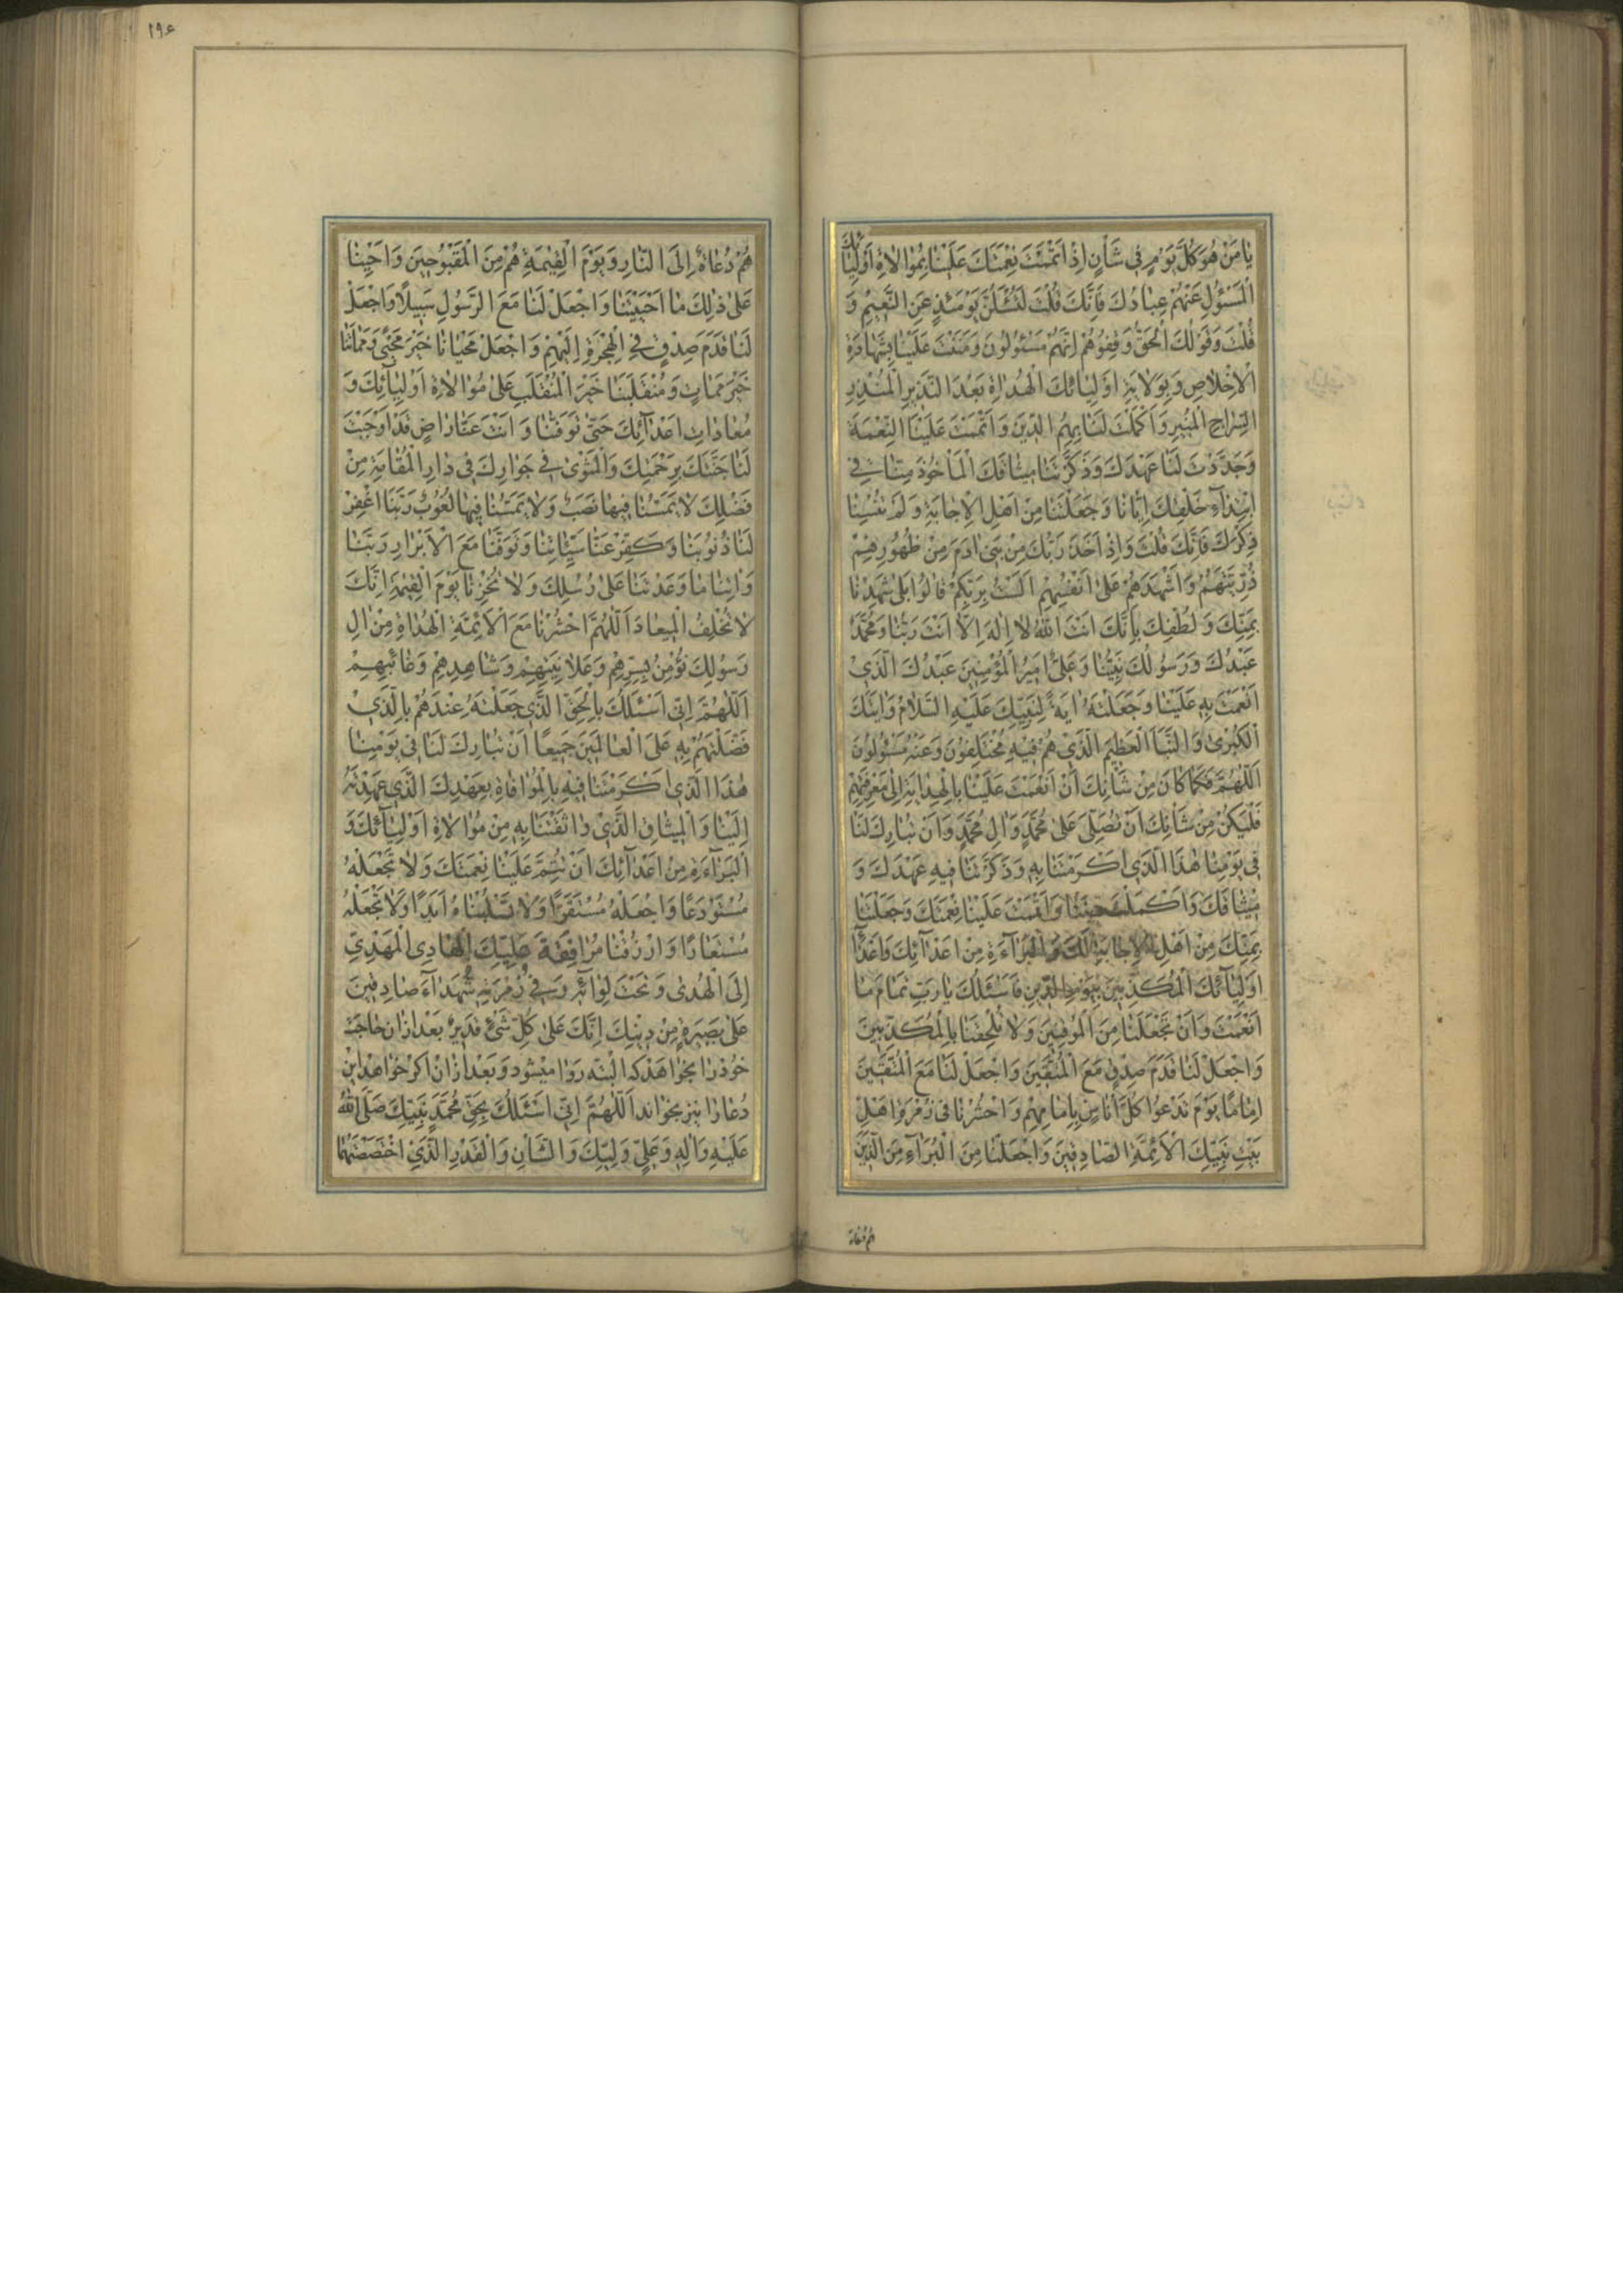 يٰا مَنْ هُوَ كُلَّ يَوْمٍ فى شَأْنٍ اِذْ اَتْمَمْتَ نِعْمَتَكَ عَلَيْنٰا بِمُوٰالاةِ اَوْلِيٰائِكَ
الْمَسْؤُلِ عَنْهُمْ عِبٰادُكَ فَاِنَّكَ قُلْتَ لَتُسْئَلُنَّ يَوْمَئِذٍ عَنِ النَّعيمِ وَ
قُلْتَ وَقَوْلُكَ الْحَقُّ وَقِفُوهُمْ اِنَّهُمْ مَسْئُولُونَ وَمَنَنْتَ عَلَيْنٰا بِشَهٰادَةِ
الْاِخْلاٰصِ وَبِوِلاٰيَةِ اَوْلِيٰائِكَ الْهُدٰاةِ بَعْدَ النَّذيرِ الْمُنْذِرِ
السِّرٰاجِ الْمُنيرِ وَاَكْمَلْتَ لَنٰا بِهِمُ الدّينَ وَاَتْمَمْتَ عَلَيْنَا النِّعْمَةَ
وَجَدَّدْتَ لَنٰا عَهْدَكَ وَذَكَّرْتَنٰا ميثٰاقَكَ الْمَأْخُوذَ مِنّٰا فى
ابْتِدٰآءِ خَلْقِكَ اِيّٰانٰا وَجَعَلْتَنٰا مِنْ اَهْلِ الْاِجٰابَةِ وَلَمْ تُنْسِنٰا
ذِكْرَكَ فَاِنَّكَ قُلْتَ وَاِذْ اَخَذَ رَبُّكَ مِنْ بَنى اٰدَمَ مِنْ ظُهُورِهِمْ
ذُرِّيَّتَهُمْ وَاَشْهَدَهُمْ عَلىٰ اَنْفُسِهِمْ اَلَسْتُ بِرَبِّكُمْ قٰالُوا بَلىٰ شَهِدْنٰا
بِمَنِّكَ وَلُطْفِكَ بِاَنَّكَ اَنْتَ اللّٰهُ لاٰ اِلٰهَ اِلاّٰ اَنْتَ رَبُّنٰا وَمُحَمَّدٌ
عَبْدُكَ وَرَسُولُكَ نَبِيُّنٰا وَعَلِىٌّ اَميرُ الْمُؤْمِنينَ عَبْدُكَ الَّذى
اَنْعَمْتَ بِهِ عَلَيْنٰا وَجَعَلْتَهُ اٰيَةً لِنَبِيِّكَ عَلَيْهِ السَّلاٰمُ وَاٰيَتَكَ
الْكُبْرىٰ وَالنَّبَأَ الْعَظيمَ الَّذى هُمْ فيهِ مُخْتَلِفُونَ وَعَنْهُ مَسْؤُلُونَ
اَللّٰهُمَّ فَكَمٰا كٰانَ مِنْ شَأْنِكَ اَنْ اَنْعَمْتَ عَلَيْنٰا بِالْهِدٰايَةِ اِلىٰ مَعْرِفَتِهِمْ
فَلْيَكُنْ مِنْ شَأْنِكَ اَنْ تُصَلِّىَ عَلىٰ مُحَمَّدٍ وَاٰلِ مُحَمَّدٍ وَاَنْ تُبٰارِكَ لَنٰا
فى يَوْمِنٰا هٰذَا الَّذى اَكْرَمْتَنٰا بِهِ وَذَكَّرْتَنٰا فيهِ عَهْدَكَ وَ
ميثٰاقَكَ وَاَكْمَلْتَ دينَنٰا وَاَتْمَمْتَ عَلَيْنٰا نِعْمَتَكَ وَجَعَلْتَنٰا
بِمَنِّكَ مِنْ اَهْلِ الْاِجٰابَةِ لَكَ وَالْبَرٰآءَةِ مِنْ اَعْدٰآئِكَ وَاَعْدٰآءِ
اَوْلِيٰآئِكَ الْمُكَذِّبينَ بِيَوْمِ الدّينِ فَاَسْئَلُكَ يٰا رَبِّ تَمٰامَ مٰا
اَنْعَمْتَ وَاَنْ تَجْعَلَنٰا مِنَ الْمُوفينَ وَلاٰ تُلْحِقْنٰا بِالْمُكَذِّبينَ
وَاجْعَلْ لَنٰا قَدَمَ صِدْقٍ مَعَ الْمُتَّقينَ وَاجْعَلْ لَنٰا مَعَ الْمُتَّقينَ
اِمٰامًا يَوْمَ تَدْعُوا كُلَّ اُنٰاسٍ بِاِمٰامِهِمْ وَاحْشُرْنٰا فى زُمْرَةِ اَهْلِ
بَيْتِ نَبِيِّكَ الْاَئِمَّةِ الصّٰادِقينَ وَاجْعَلْنٰا مِنَ الْبُرَآءِ مِنَ الَّذينَ
هم دعاة
۱۹۶
هُمْ دُعٰاةٌ اِلَى النّٰارِ وَيَوْمَ الْقِيٰمَةِ هُمْ مِنَ الْمَقْبُوحينَ وَاَحْيِنٰا
عَلىٰ ذٰلِكَ مٰا اَحْيَيْتَنٰا وَاجْعَلْ لَنٰا مَعَ الرَّسُولِ سَبيلًا وَاجْعَلْ
لَنٰا قَدَمَ صِدْقٍ فِى الْهِجْرَةِ اِلَيْهِمْ وَاجْعَلْ مَحْيٰانٰا خَيْرَ مَحْيًى وَمَمٰاتَنٰا
خَيْرَ مَمٰاتٍ وَمُنْقَلَبَنٰا خَيْرَ الْمُنْقَلَبِ عَلىٰ مُوٰالاٰةِ اَوْلِيٰآئِكَ وَ
مُعٰادٰاتِ اَعْدٰآئِكَ حَتّىٰ تَوَفّٰنٰا وَاَنْتَ عَنّٰا رٰاضٍ قَدْ اَوْجَبْتَ
لَنٰا جَنَّتَكَ بِرَحْمَتِكَ وَالْمَثْوىٰ فى جَوٰارِكَ فى دٰارِ الْمُقٰامَةِ مِنْ
فَضْلِكَ لاٰ يَمَسُّنٰا فيهٰا نَصَبٌ وَلاٰ يَمَسُّنٰا فيهٰا لُغُوبٌ رَبَّنَا اغْفِرْ
لَنٰا ذُنُوبَنٰا وَكَفِّرْ عَنّٰا سَيِّئٰاتِنٰا وَتَوَفَّنٰا مَعَ الْاَبْرٰارِ رَبَّنٰا
وَاٰتِنٰا مٰا وَعَدْتَنٰا عَلىٰ رُسُلِكَ وَلاٰ تُخْزِنٰا يَوْمَ الْقِيٰمَةِ اِنَّكَ
لاٰ تُخْلِفُ الْميعٰادَ اَللّٰهُمَّ احْشُرْنٰا مَعَ الْاَئِمَّةِ الْهُدٰاةِ مِنْ اٰلِ
رَسُولِكَ نُؤْمِنُ بِسِرِّهِمْ وَعَلاٰنِيَتِهِمْ وَشٰاهِدِهِمْ وَغٰائِبِهِمْ
اَللّٰهُمَّ اِنّى اَسْئَلُكَ بِالْحَقِّ الَّذى جَعَلْتَهُ عِنْدَهُمْ بِالَّذى
فَضَّلْتَهُمْ بِهِ عَلَى الْعٰالَمينَ جَميعًا اَنْ تُبٰارِكَ لَنٰا فى يَوْمِنٰا
هٰذَا الَّذى اَكْرَمْتَنٰا فيهِ بِالْمُوٰافٰاةِ بِعَهْدِكَ الَّذى عَهِدْتَهُ
اِلَيْنٰا وَالْميثٰاقِ الَّذى وٰاثَقْتَنٰا بِهِ مِنْ مُوٰالاٰةِ اَوْلِيٰآئِكَ وَ
الْبَرٰآءَةِ مِنْ اَعْدٰآئِكَ اَنْ تُتِمَّ عَلَيْنٰا نِعْمَتَكَ وَلاٰ تَجْعَلْهُ
مُسْتَوْدَعًا وَاجْعَلْهُ مُسْتَقَرًّا وَلاٰ تَسْلُبْنٰاهُ اَبَدًا وَلاٰ تَجْعَلْهُ
مُسْتَعٰارًا وَارْزُقْنٰا مُرٰافَقَةَ وَلِيِّكَ الْهٰادِى الْمَهْدِىِّ
اِلَى الْهُدىٰ وَتَحْتَ لِوٰآئِهِ وَفى زُمْرَتِهِ شُهَدٰآءَ صٰادِقينَ
عَلىٰ بَصيرَةٍ مِنْ دينِكَ اِنَّكَ عَلىٰ كُلِّ شَىْءٍ قَديرٌ بَعْد ازٰان حٰاجَت
خُود رٰا بخوٰاهَد كه البَتّه رَوٰا ميشود وَبَعْد ازٰان اكر خوٰاهد اين
دُعٰا رٰا نيز بخوٰاند اَللّٰهُمَّ اِنّى اَسْئَلُكَ بِحَقِّ مُحَمَّدٍ نَبِيِّكَ صَلَّى اللّٰهُ
عَلَيْهِ وَاٰلِهِ وَعَلِىٍّ وَلِيِّكَ وَالشَّأْنِ وَالْقَدْرِ الَّذِى اخْتَصَصْتَهُمٰا